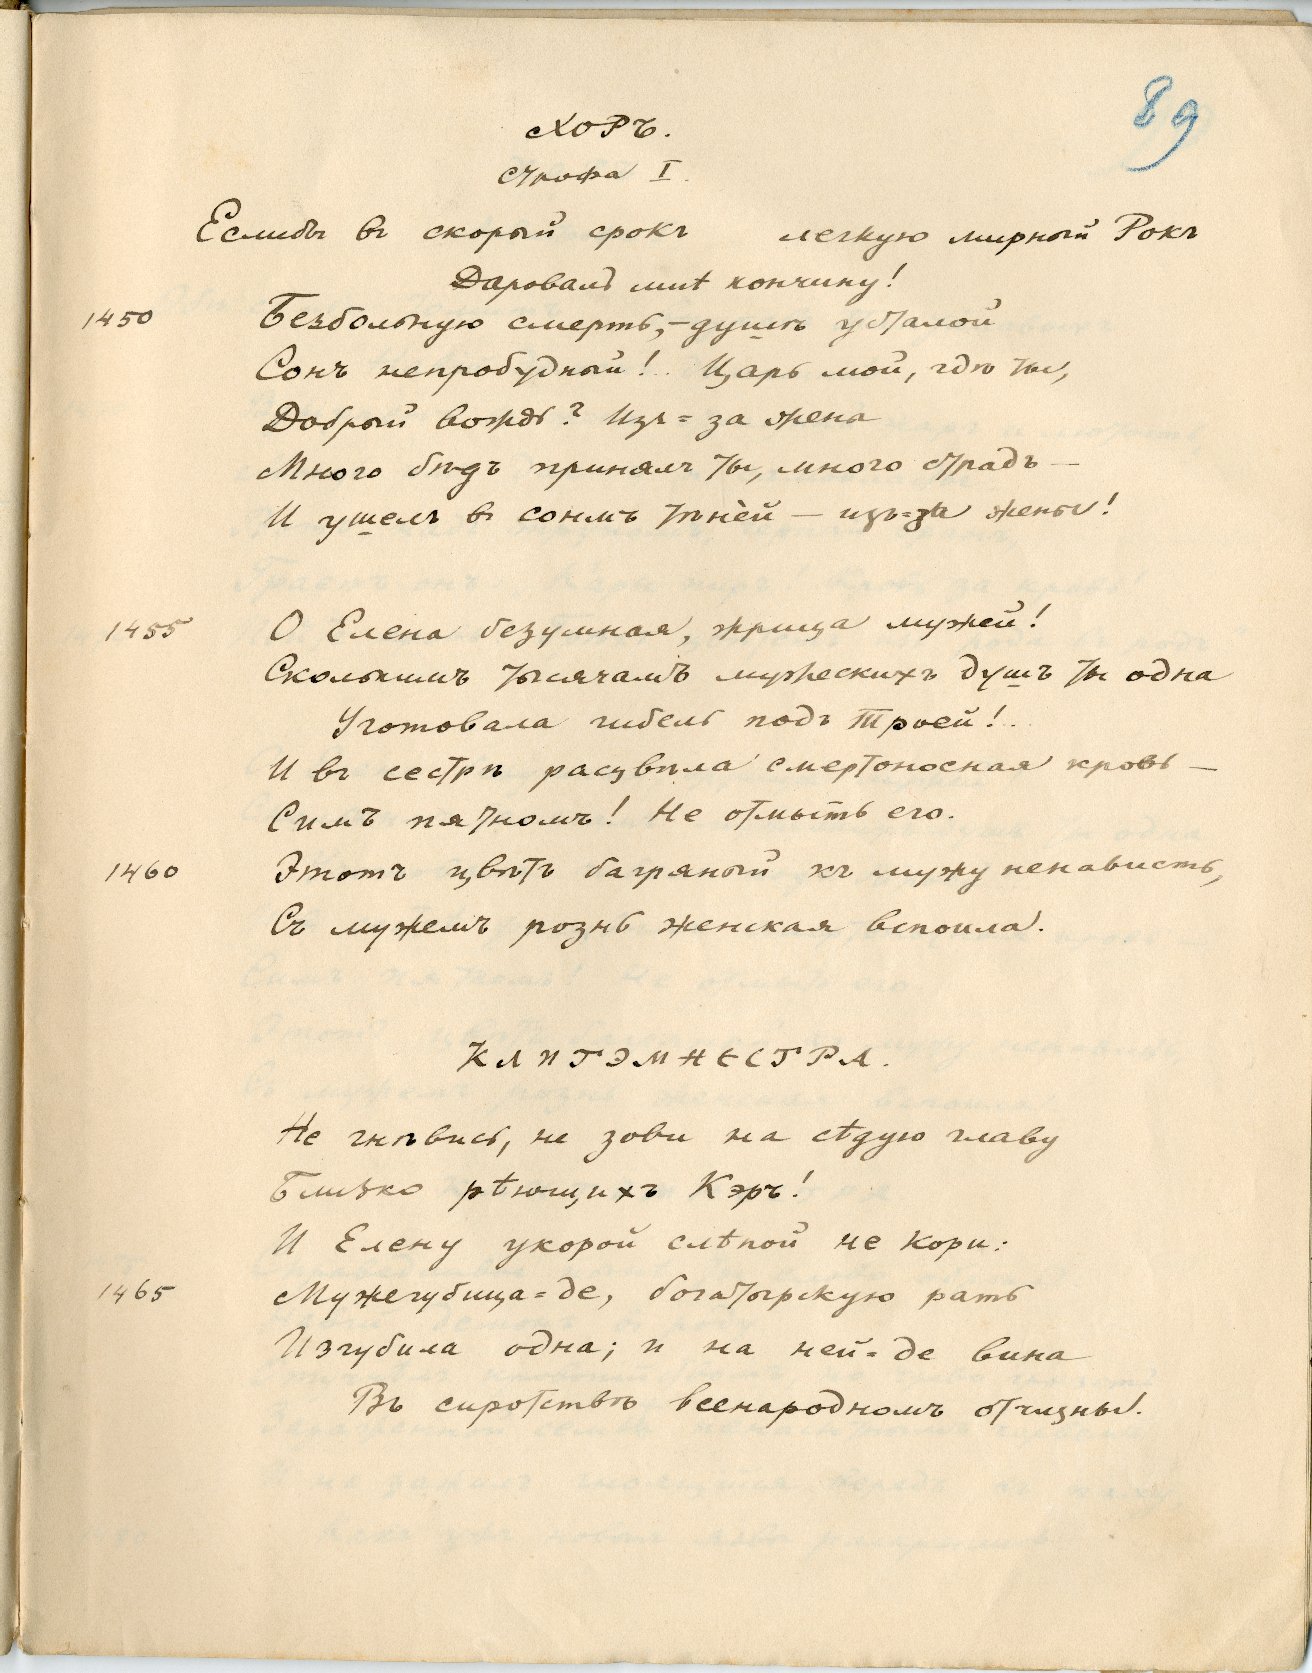 89
ХОРЪ.
Строфа I.
Еслибъ въ скорый срокъ легкую мирный Рокъ
Даровалъ мнѣ кончину!
1450 Безбольную смерть,—душѣ усталой
Сонъ непробудный!.. Царь мой, гдѣ ты,
Добрый вождь? Изъ=за жена
Много бѣдъ принялъ ты, много страдъ —
И ушелъ въ сонмъ тѣней — изъ=за жены!
1455 О Елена безумная, жрица мужей!
Сколькимъ тысячамъ мужескихъ душъ ты одна
Уготовала гибель подъ Троей!..
И въ сестрѣ расцвѣла смертоносная кровь —
Симъ пятномъ! Не отмыть его.
1460 Этотъ цвѣтъ багряный къ мужу ненависть,
Съ мужемъ рознь женская вспоила.
КЛИТЭМНЕСТРА.
Не гнѣвись, не зови на сѣдую главу
Близко рѣющихъ Кэръ!
И Елену укорой слѣпой не кори:
1465 Мужегубица=де, богатырскую рать
Изгубила одна; и на ней=де вина
Въ сиротствѣ всенародномъ отчизны.